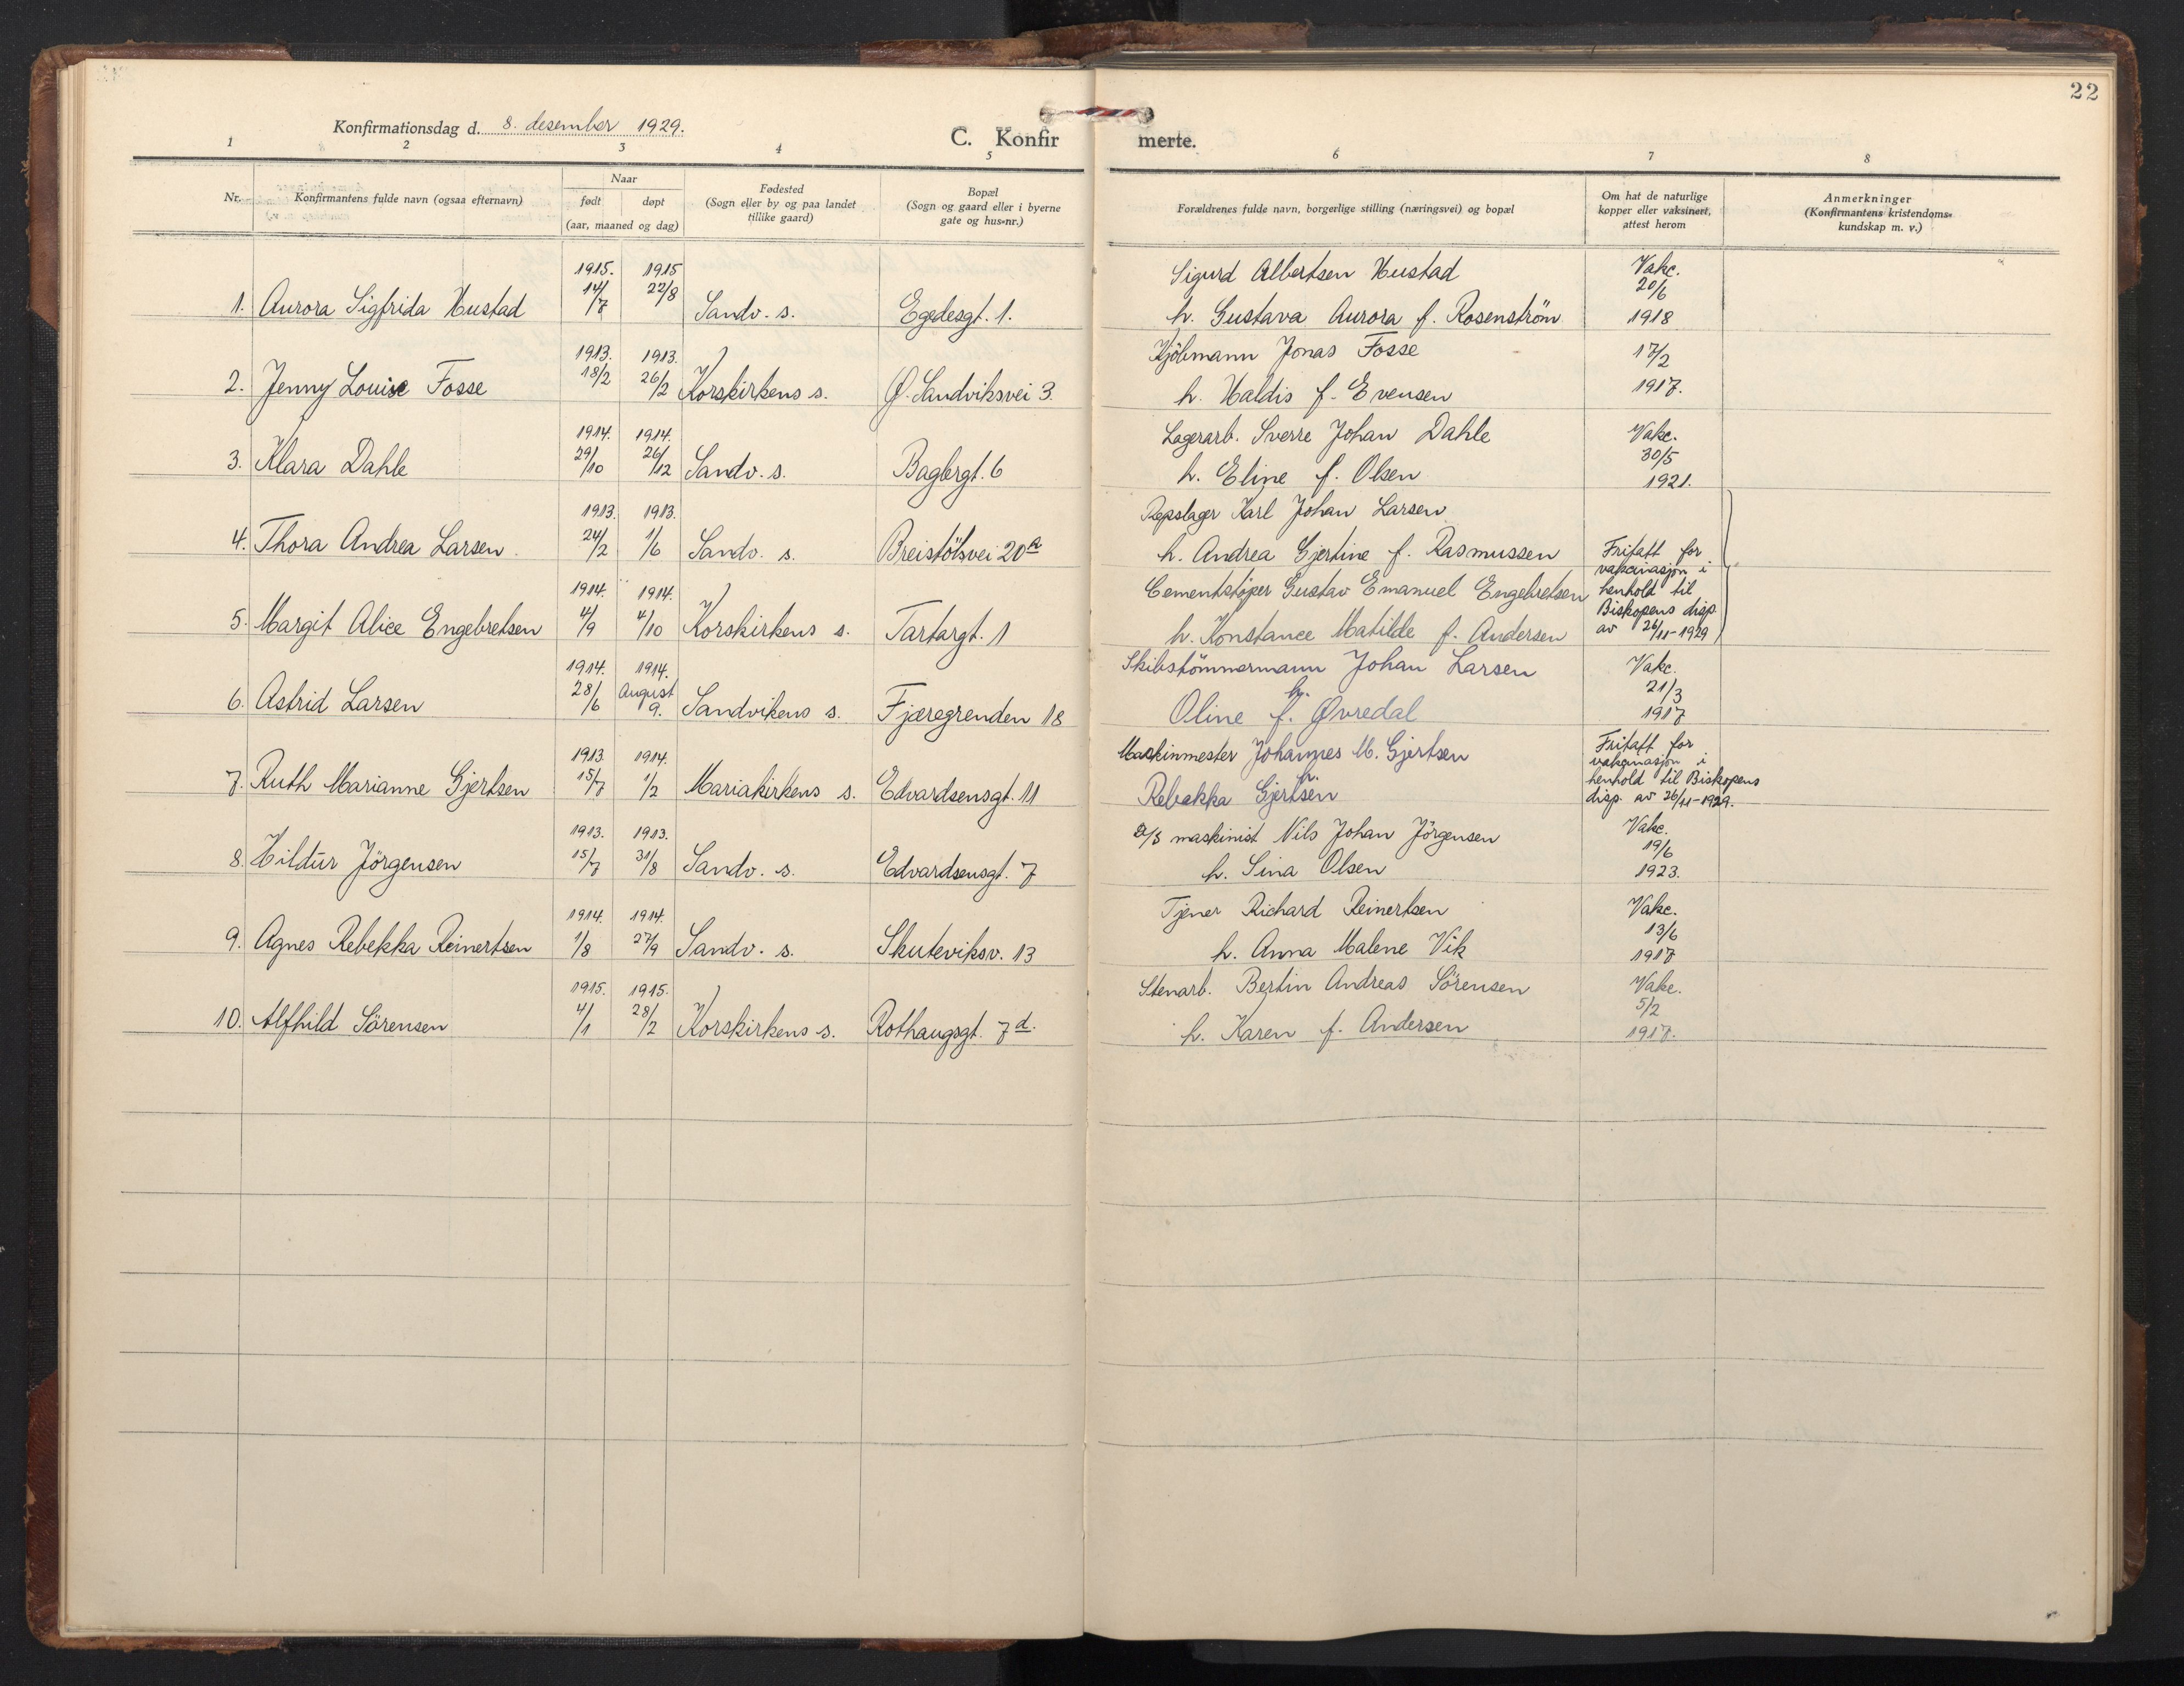 22
Konfirmationsdag d. 8. desember 1929.
C. Konfir merte.
1 2 3 4 5 6 7 8
Nr. Konfirmantens fulde navn (ogsaa efternavn) Naar født døpt (aar, maaned og dag) Fødested (Sogn eller by og paa landet tillike gaard) Bopæl (Sogn og gaard eller i byerne gate og hus=nr.) Forældrenes fulde navn, borgerlige stilling (næringsvei) og bopæl Om hat de naturlige kopper eller vaksinert, attest herom Anmerkninger (Konfirmantens kristendoms=kundskap m. v.)
1. Aurora Sigfrida Hustad 1915. 14/7 1915 22/8 Sandv. s. Egedesgt. 1. Sigurd Albertsen Hustad h. Gustava Aurora f. Rosenström Vakc. 20/6 1918
2. Jenny Louise Fosse 1913. 18/2 1913. 26/2 Korskirkens s. Ø. Sandviksvei 3. Kjöbmann Jonas Fosse h. Haldis f. Evensen 17/2 1917.
3. Klara Dahle 1914. 29/10 1914. 26/12 Sandv. s. Baglergt. 6 Lagerarb. Sverre Johan Dahle h. Eline f. Olsen Vakc. 30/5 1921.
4. Thora Andrea Larsen 1913. 24/2 1913. 1/6 Sandv. s. Breistölsvei 20a Repslager Karl Johan Larsen h. Andrea Gjertine f. Rasmussen
5. Margit Alice Engebretsen 1914. 4/9 1914. 4/10 Korskirkens s. Tartargt. 1 Cementstöper Gustav Emanuel Engebretsen h. Konstance Matilde f. Andersen Fritatt for vakcinasjon i henhold til Biskopens disp. av 26/11-1929
6. Astrid Larsen 1914. 28/6 1914. August 9. Sandvikens s. Fjæregrenden 18 Skibstömmermann Johan Larsen h. Oline f. Øvredal Vakc. 21/3 1917
7. Ruth Marianne Gjertsen 1913 15/7 1914. 1/2 Mariakirkens s. Edvardsensgt. 11 Maskinmester Johannes M. Gjertsen h. Rebekka Gjertsen Fritatt for vakcinasjon i henhold til Biskopens disp. av 26/11-1929.
8. Hildur Jörgensen 1913. 15/7 1913. 31/8 Sandv. s. Edvardsensgt. 7 D/S maskinist Nils Johan Jörgensen h. Sina Olsen Vakc. 19/6 1923.
9. Agnes Rebekka Reinertsen 1914. 1/8 1914. 27/9 Sandv. s. Skuteviksv. 13 Tjener Richard Reinertsen h. Anna Malene Vik Vakc. 13/6 1917
10. Alfhild Sörensen 1915. 4/1 1915. 28/2 Korskirkens s. Rothaugsgt. 7d. Stenarb. Bertin Andreas Sörensen h. Karen f. Andersen Vakc. 5/2 1917.